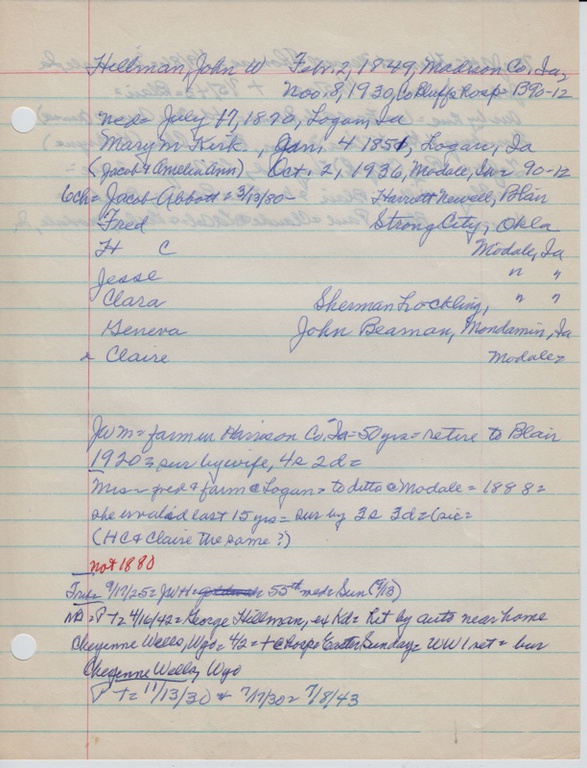 Hillman, John W Febr. 2, 1849, Madison Co, Ia,
Nov. 8, 1930, Co Bluffs Hosp = B90-12
med = July 17, 1870, Logan, Ia
Mary M Kirk, Jan. 4 1851, Logan, Ia
(Jacob & Amelia Ann) Oct. 2, 1936, Modale, Ia = 90-12
6ch = Jacob Abbott = 3/13/50- Harriett Newell, Blair
Fred Strong City, Okla
H C Modale, Ia
Jesse " "
Clara Sherman Lockling, " "
Geneva John Beaman, Mondamin, Ia
& Claire Modale =
JWM = farm in Harrison Co, Ia = 50 yrs = retire to Blair
1920 = sur by wife, 4s 2d =
Mrs = pred & farm @ Logan = to ditto @ Modale = 1888 =
she invalid last 15 yrs = sur by 3s 3d = (sic =
(HC & Claire the same?)
not 1880
Trib = 9/17/25 = JWH = 55th wed = Sun (9/13)
NB = PT = 4/16/42 = George Hillman, ex Kd = hit by auto near home
Cheyenne Wells, Wyo = 4/2 = + @ hosp = Easter Sunday = WW 1 vet = bur
Cheyenne Wells, Wyo
PT = 11/13/30 & 7/17/30 = 7/8/43